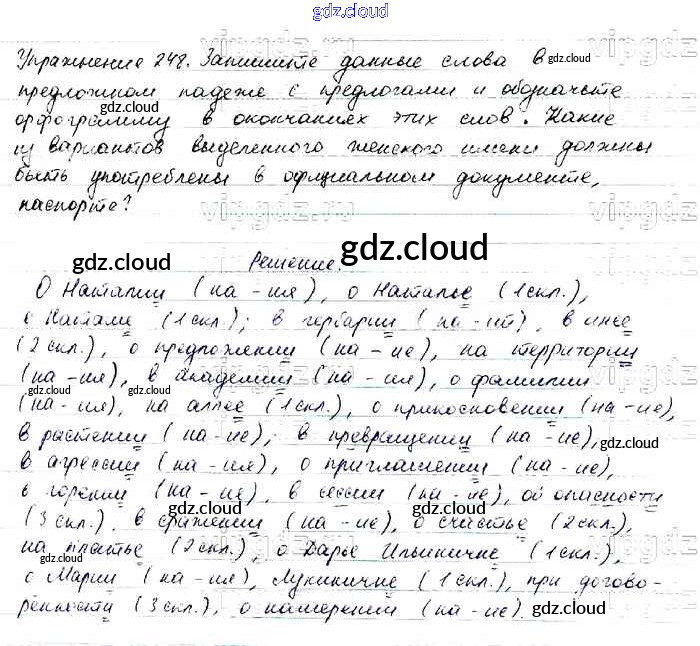 gdz.cloud
Упражнение 248. Запишите данные слова в
предложном падеже с предлогами и обозначьте
орфограмму в окончаниях этих слов. Какие
из вариантов выделенного женского имени должны
быть употреблены в официальном документе,
паспорте?
Решение.
О Наталии (на -ия), о Наталье (1 скл.),
о Натале (1 скл.); в гербарии (на -ий), в инее
(2 скл.), о предложении (на -ие), на территории
(на -ия), в академии (на -ия), о фамилии
(на -ия), на аллее (1 скл.), о прикосновении (на -ие),
в растении (на -ие), в превращении (на -ие),
в агрессии (на -ия), о приглашении (на -ие),
в горении (на -ие), в сессии (на -ие), об опасности
(3 скл.), в сражении (на -ие), о счастье (2 скл.),
на платье (2 скл.), о Дарье Ильиничне (1 скл.),
о Марии (на -ия), Лукиничне (1 скл.), при догово-
ренности (3 скл.), о намерении (на -ие).